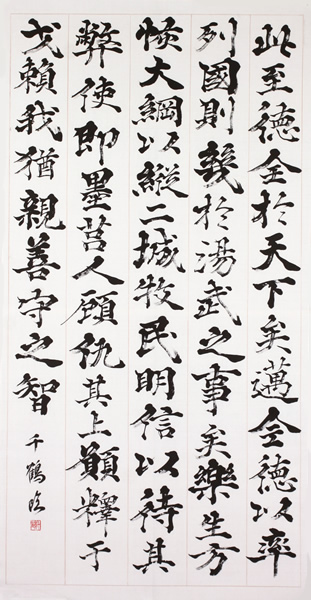 此至德全於天下矣邁全德以率
列國則幾於湯武之事矣樂生方
恢大綱以縱二城牧民明信以待其
弊使即墨莒人顧仇其上願釋干
戈賴我猶親善守之智
千鶴臨